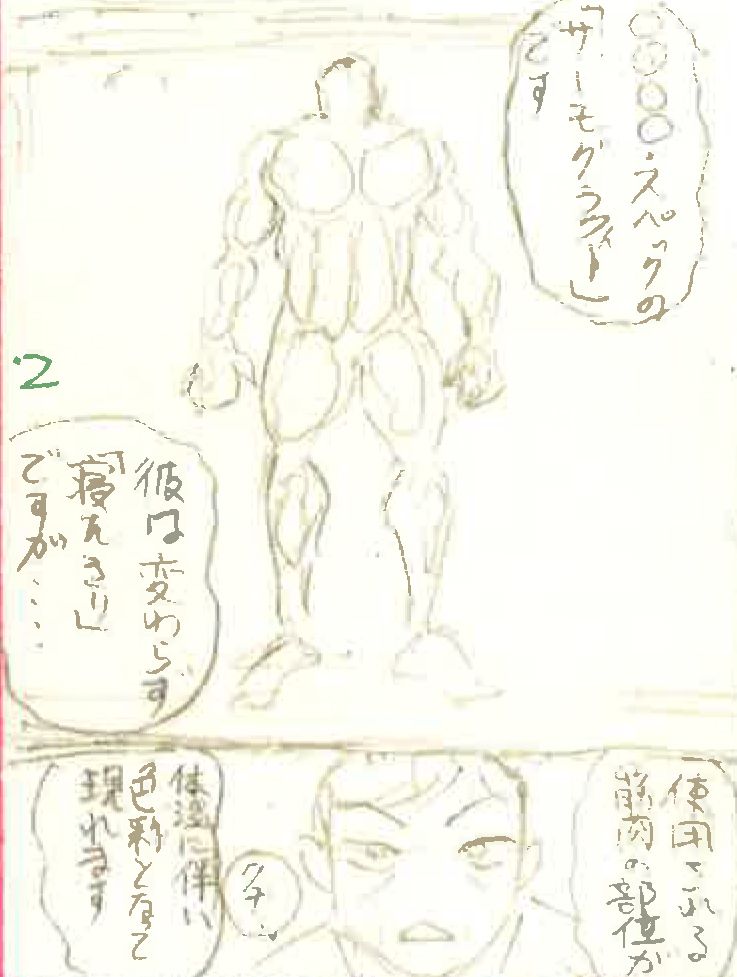 ○○○○・スペックの
「サーモグラフィー」
です
彼は変わらず
「寝たきり」
ですが・・・・
使用される
筋肉の部位が
体温に伴い
色彩となって
現れます
2